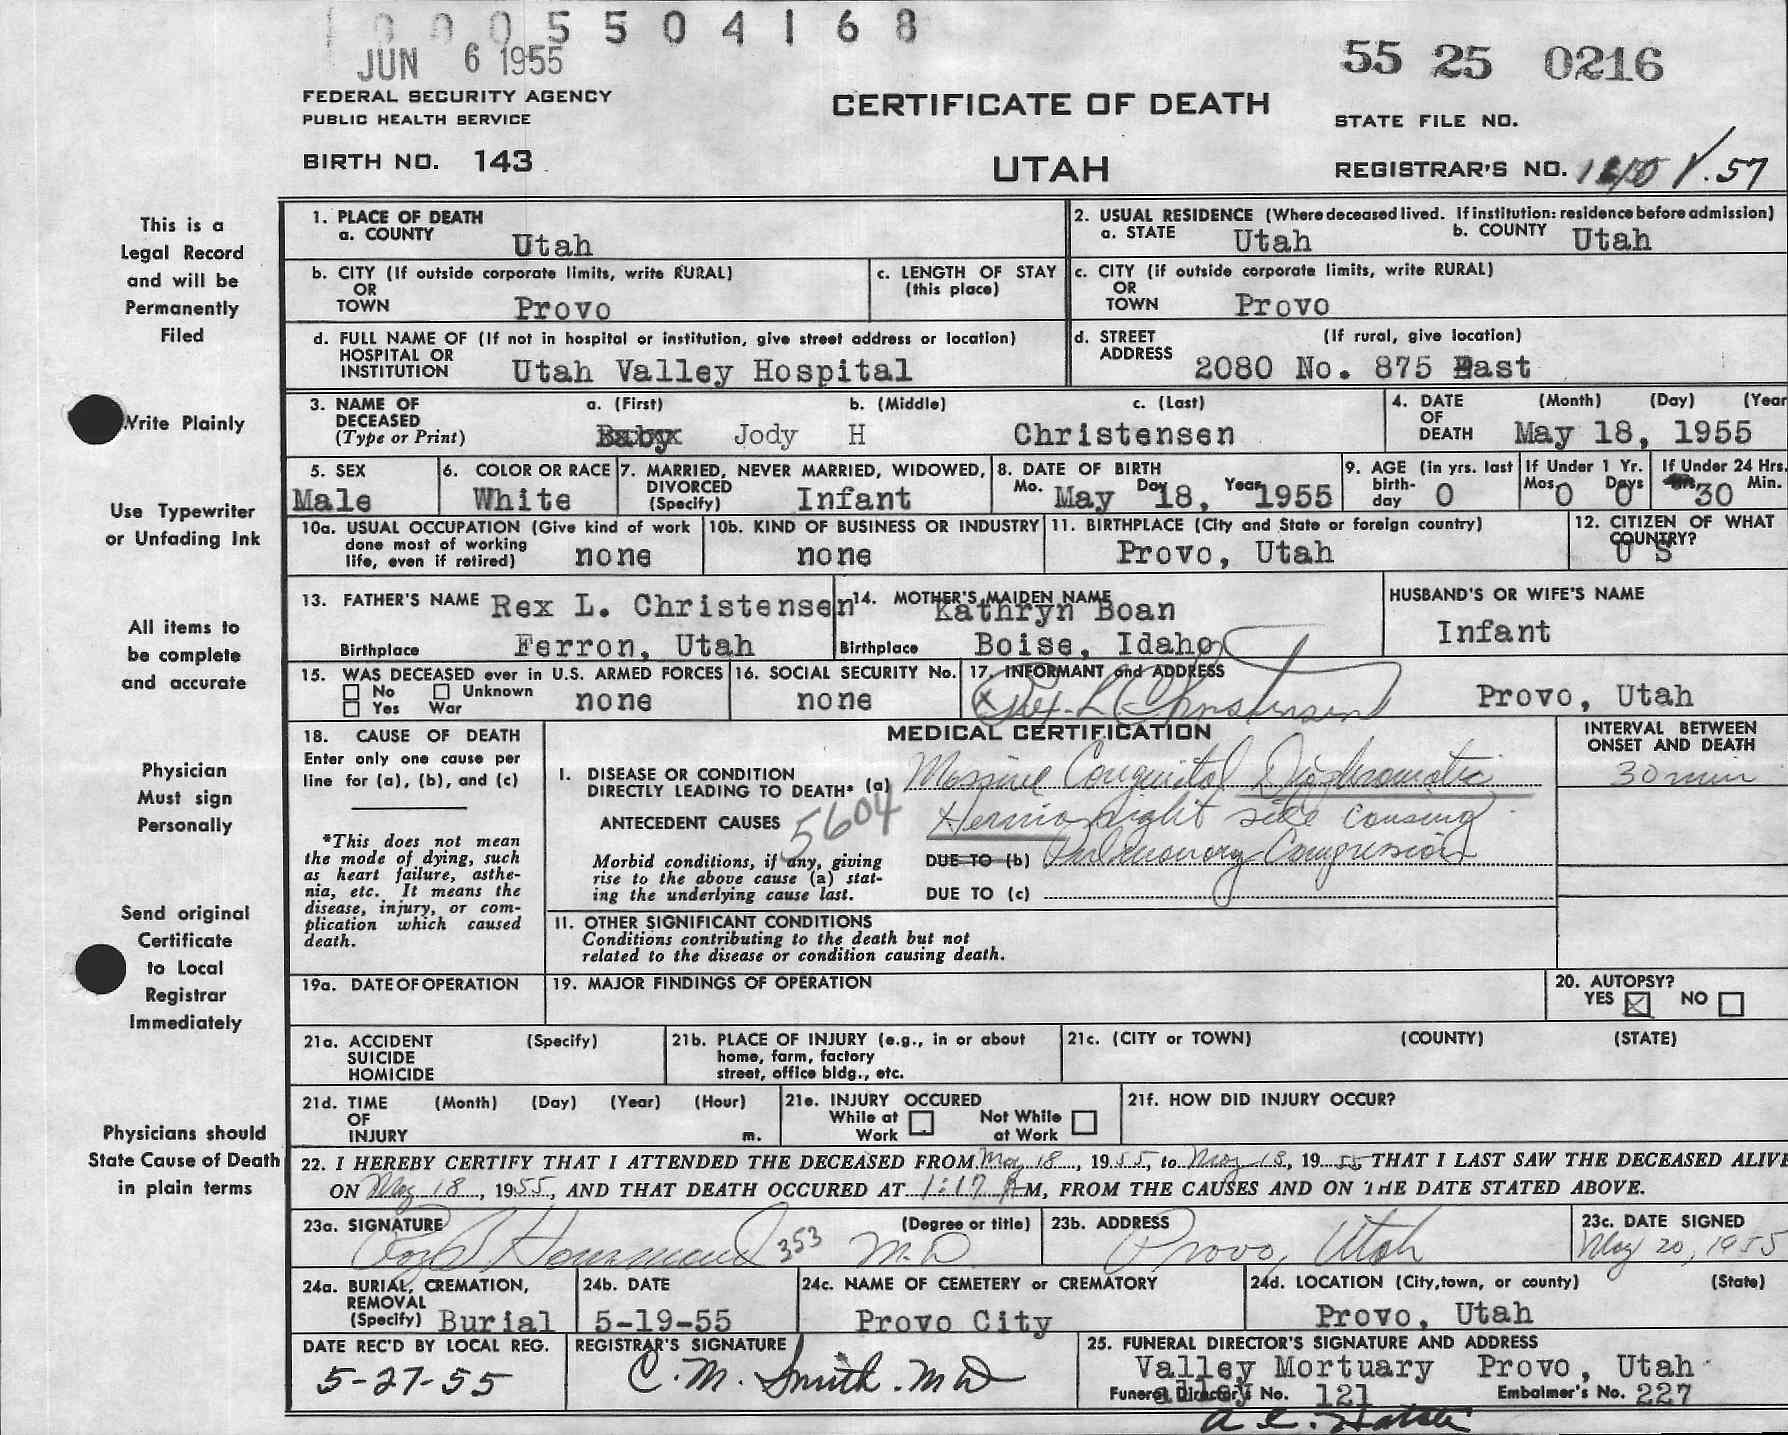 0005504168
JUN 6 1955
55 25 0216
FEDERAL SECURITY AGENCY
PUBLIC HEALTH SERVICE
CERTIFICATE OF DEATH
STATE FILE NO.
BIRTH NO. 143
UTAH
REGISTRAR'S NO. V.57
This is a
Legal Record
and will be
Permanently
Filed
Write Plainly
Use Typewriter
or Unfading Ink
All items to
be complete
and accurate
Physician
Must sign
Personally
Send original
Certificate
to Local
Registrar
Immediately
Physicians should
State Cause of Death
in plain terms
1. PLACE OF DEATH
a. COUNTY Utah
2. USUAL RESIDENCE (Where deceased lived. If institution: residence before admission)
a. STATE Utah b. COUNTY Utah
b. CITY (If outside corporate limits, write RURAL)
OR
TOWN Provo
c. LENGTH OF STAY
(this place)
c. CITY (if outside corporate limits, write RURAL)
OR
TOWN Provo
d. FULL NAME OF (If not in hospital or institution, give street address or location)
HOSPITAL OR
INSTITUTION Utah Valley Hospital
d. STREET (If rural, give location)
ADDRESS 2080 No. 875 East
3. NAME OF DECEASED (Type or Print)
a. (First) b. (Middle) c. (Last)
Baby Jody H Christensen
4. DATE OF DEATH (Month) (Day) (Year
May 18, 1955
5. SEX
Male
6. COLOR OR RACE
White
7. MARRIED, NEVER MARRIED, WIDOWED,
DIVORCED
(Specify) Infant
8. DATE OF BIRTH
Mo. May Day 18, Year 1955
9. AGE (in yrs. last
birth-
day 0
If Under 1 Yr.
Mos 0 Days 0
If Under 24 Hrs.
30 Min.
10a. USUAL OCCUPATION (Give kind of work
done most of working
life, even if retired) none
10b. KIND OF BUSINESS OR INDUSTRY
none
11. BIRTHPLACE (City and State or foreign country)
Provo, Utah
12. CITIZEN OF WHAT
COUNTRY?
U S
13. FATHER'S NAME Rex L. Christensen
Birthplace Ferron, Utah
14. MOTHER'S MAIDEN NAME
Kathryn Boan
Birthplace Boise, Idaho
HUSBAND'S OR WIFE'S NAME
Infant
15. WAS DECEASED ever in U.S. ARMED FORCES
No Unknown
Yes War none
16. SOCIAL SECURITY No.
none
17. INFORMANT and ADDRESS
x Rex L Christensen Provo, Utah
18. CAUSE OF DEATH
Enter only one cause per
line for (a), (b), and (c)
*This does not mean
the mode of dying, such
as heart failure, asthe-
nia, etc. It means the
disease, injury, or com-
plication which caused
death.
MEDICAL CERTIFICATION
INTERVAL BETWEEN
ONSET AND DEATH
I. DISEASE OR CONDITION
DIRECTLY LEADING TO DEATH* (a) Massive Congenital Diaphramatic
30 min
ANTECEDENT CAUSES 5604 Hernia right side causing
Morbid conditions, if any, giving
rise to the above cause (a) stat-
ing the underlying cause last.
DUE TO (b) Pulmonary Compression
DUE TO (c)
II. OTHER SIGNIFICANT CONDITIONS
Conditions contributing to the death but not
related to the disease or condition causing death.
19a. DATE OF OPERATION
19. MAJOR FINDINGS OF OPERATION
20. AUTOPSY?
YES NO
21a. ACCIDENT (Specify)
SUICIDE
HOMICIDE
21b. PLACE OF INJURY (e.g., in or about
home, farm, factory
street, office bldg., etc.
21c. (CITY or TOWN) (COUNTY) (STATE)
21d. TIME (Month) (Day) (Year) (Hour)
OF
INJURY m.
21e. INJURY OCCURED
While at Work Not While at Work
21f. HOW DID INJURY OCCUR?
22. I HEREBY CERTIFY THAT I ATTENDED THE DECEASED FROM May 18, 1955, to May 18, 1955, THAT I LAST SAW THE DECEASED ALIVE
ON May 18, 1955, AND THAT DEATH OCCURED AT 1:17 M, FROM THE CAUSES AND ON THE DATE STATED ABOVE.
23a. SIGNATURE (Degree or title)
353 M.D.
23b. ADDRESS
Provo, Utah
23c. DATE SIGNED
May 20, 1955
24a. BURIAL, CREMATION,
REMOVAL
(Specify) Burial
24b. DATE
5-19-55
24c. NAME OF CEMETERY or CREMATORY
Provo City
24d. LOCATION (City, town, or county) (State)
Provo, Utah
DATE REC'D BY LOCAL REG.
5-27-55
REGISTRAR'S SIGNATURE
C. M. Smith. MD
25. FUNERAL DIRECTOR'S SIGNATURE AND ADDRESS
Valley Mortuary Provo, Utah
Funeral Director's No. 121 Embalmer's No. 227